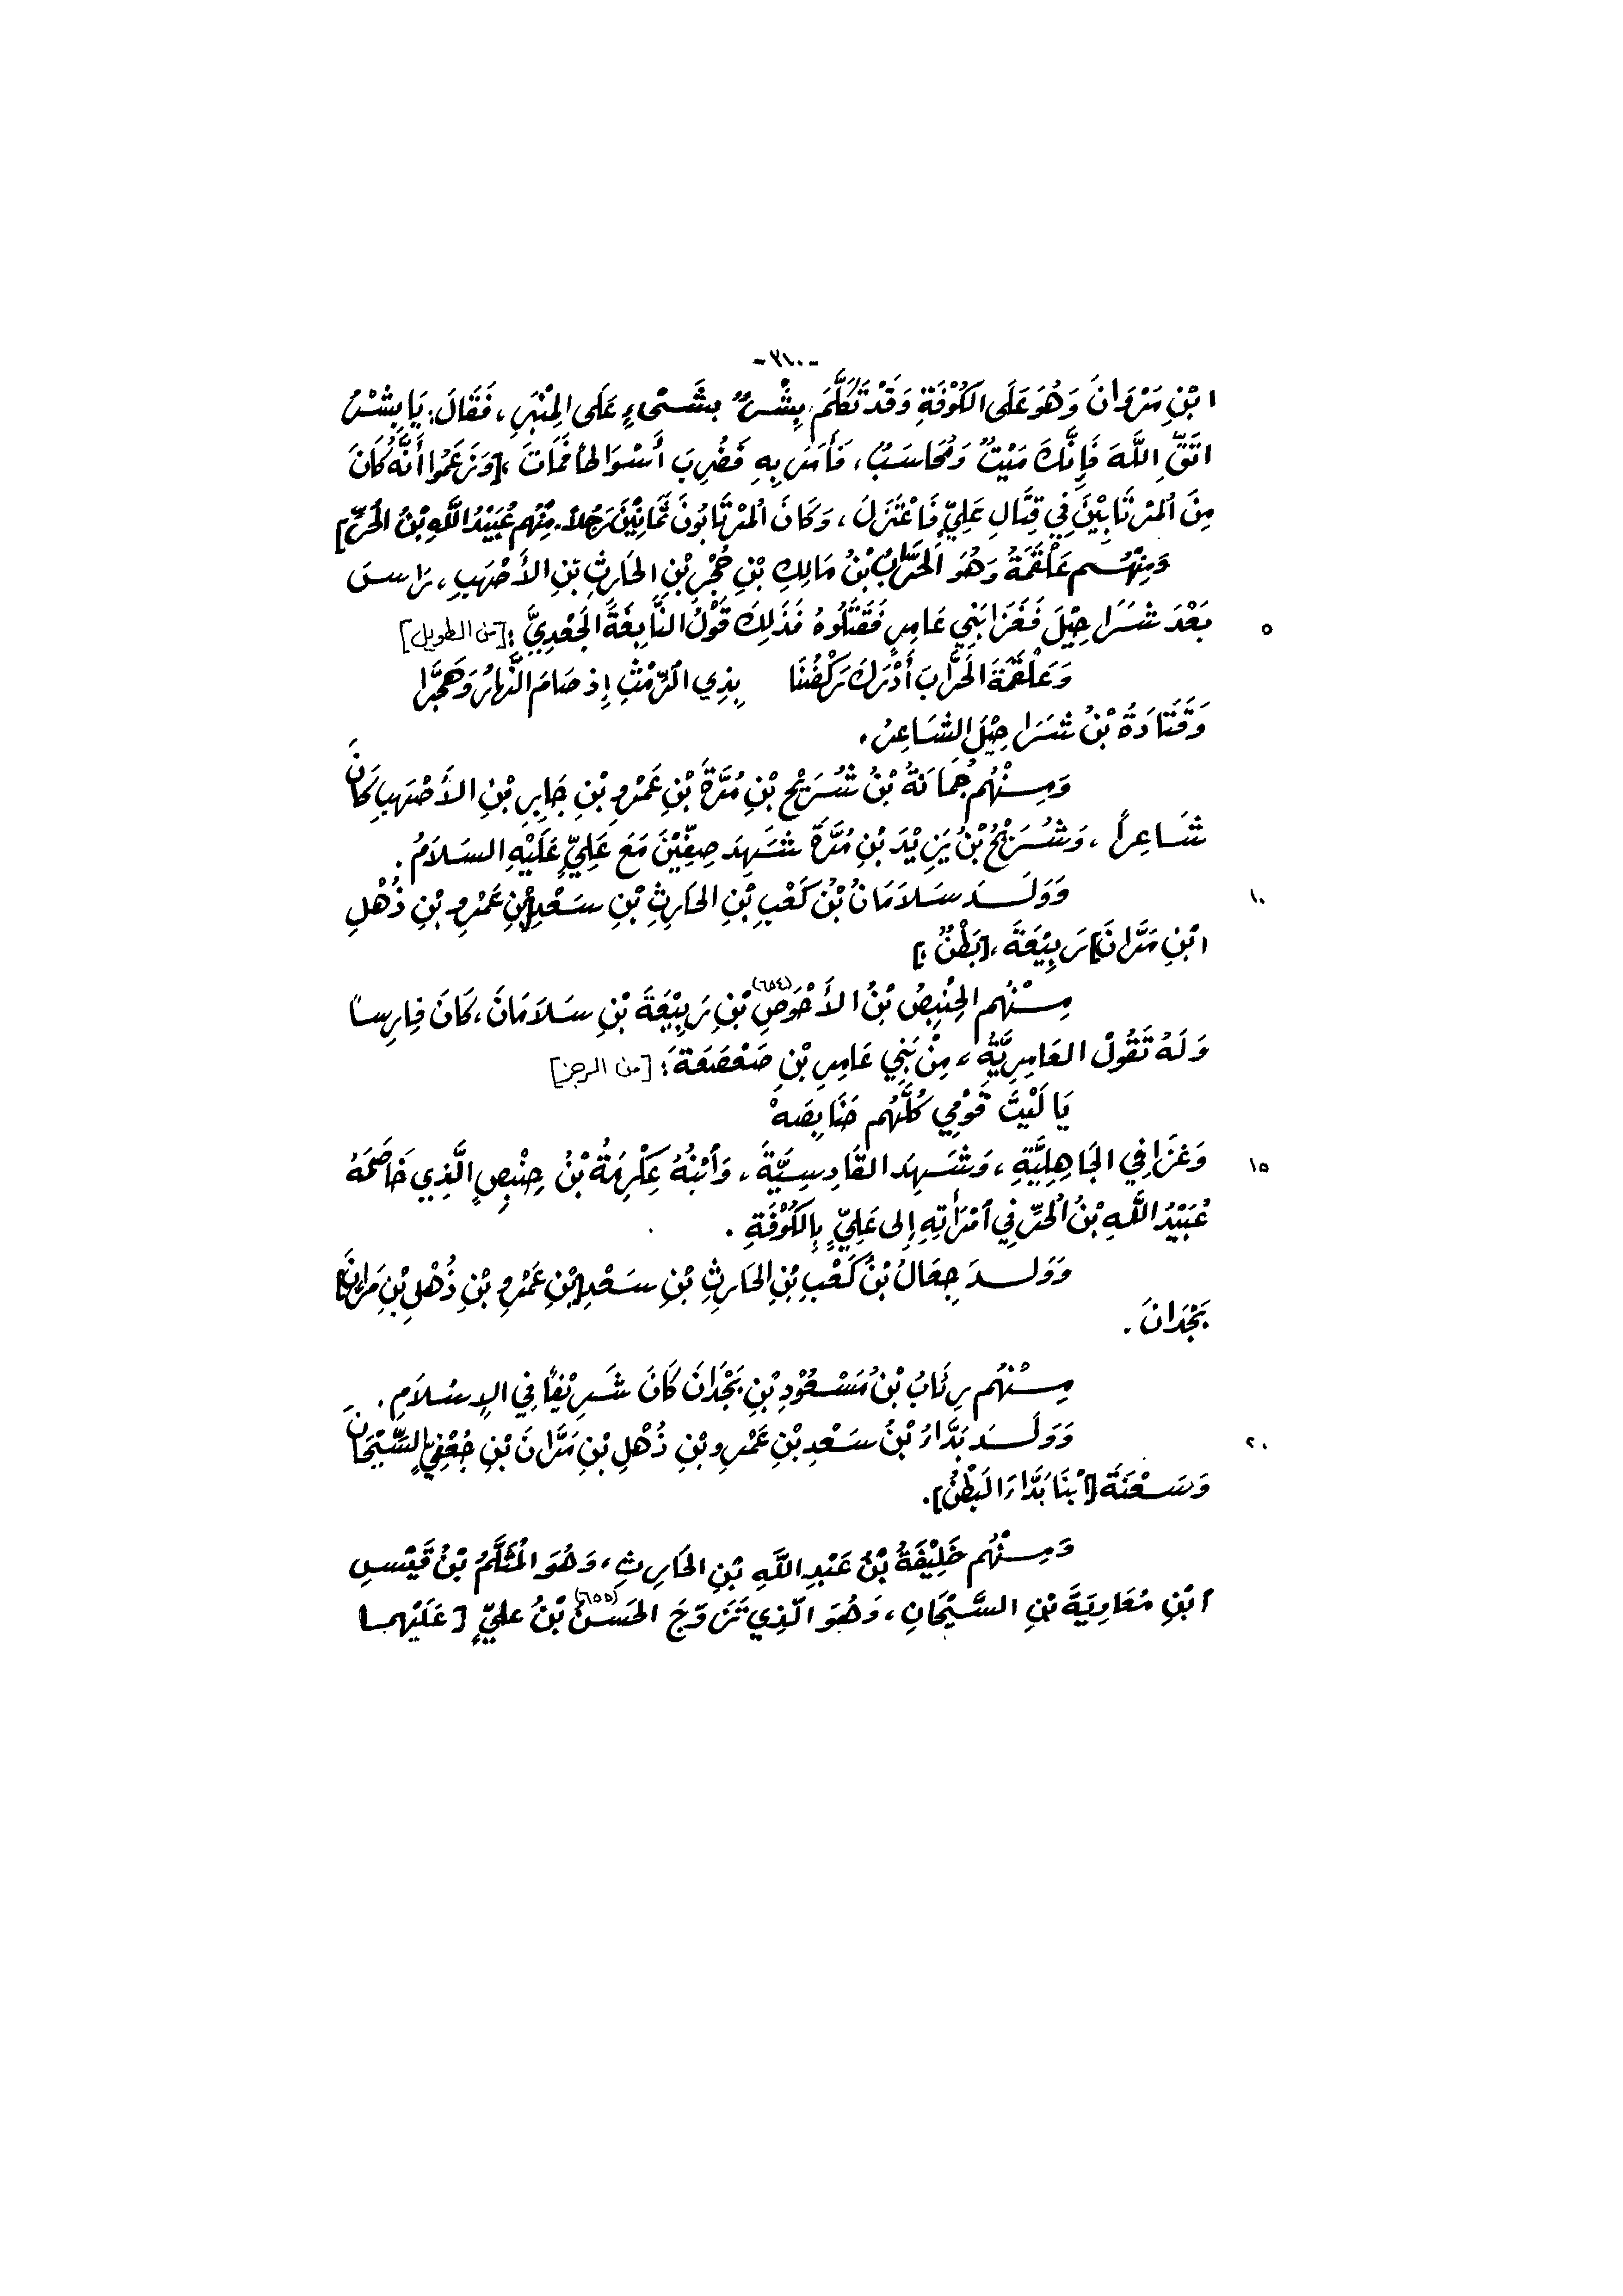 -٣١٠-
ابْنِ مَرْوَانَ وَهُوَ عَلَى الكُوْفَةِ وَقَدْ تَكَلَّمَ بِشْرٌ بشَىْءٍ عَلَى المِنْبَرِ، فَقَالَ: يَا بِشْرُ
اتَّقِ اللَّهَ فَإِنَّكَ مَيْتٌ وَمُحَاسَبٌ، فَأَمَرَ بِهِ فَضُرِبَ أَسْوَاطاً فَمَاتَ، [وَزَعَمُوا أَنَّهُ كَانَ
مِنَ المُرْتَابِيْنَ فِي قِتَالِ عَلِيٍّ فَاعْتَزَلَ، وَكَانَ المُرْتَابُونَ ثَمَانِيْنَ رَجُلاً. مِنْهُم عُبَيْدُ اللَّهِ بْنُ الحُرِّ]
وَمِنْهُم عَلْقَمَةُ وَهُوَ الحَرَّابُ بْنُ مَالِكِ بْنِ حُجْرِ بْنِ الحَارِثِ بْنِ الأَصْهَبِ، رَاسَ
٥ بَعْدَ شَرَاحِيْلَ فَغَزَا بَنِي عَامِرٍ فَقَتَلُوهُ فَذَلِكَ قَوْلُ النَّابِغَةَ الجَعْدِيَّ: [من الطويل]
وَعَلْقَمَةَ الحَرَّابَ أَدْرَكَ رَكْضُنَا بِذِي الرِّمْثِ إِذ صَامَ النَّهارُ وَهَجَّرَا
وَقَتَادَةُ بْنُ شَرَاحِيْلَ الشَاعِرُ.
وَمِنْهُم جُمَانَةُ بْنُ شُرَيْحِ بْنِ مُرَّةَ بْنِ عَمْرِو بْنِ جَابِرِ بْنِ الأَصْهَبِ كَانَ
شَاعِراً، وَشُرَيْحُ بْنُ يَزِيْدَ بْنِ مُرَّةَ شَهِدَ صِفِّيْنَ مَعَ عَلِيٍّ عَلَيْهِ السَلاَمُ.
١٠ وَوَلَدَ سَلاَمَانُ بْنُ كَعْبِ بْنِ الحَارِثِ بْنِ سَعْدِ [بْنِ عَمْرِو بْنِ ذُهْلِ
ابْنِ مَرَّانَ] رَبِيْعَةَ، [بَطْنٌ،]
مِنْهُم الحِنْبِصُ بْنُ الأَحْوَصِ (٦٥٤) بْنِ رَبِيْعَةَ بْنِ سَلاَمَانَ، كَانَ فَارِساً
وَلَهُ تَقُوْلُ العَامِرِيَّةُ، مِنْ بَنِي عَامِرِ بْنِ صَعْصَعَةَ: [من الرجز]
يَا لَيْتَ قَوْمِي كُلَّهُم حَنَابِصَهْ
١٥ وَغَزَا فِي الجَاهِلِيَّةِ، وَشَهِدَ القَادِسِيَّةَ، وَابْنُهُ عِكْرِمَةُ بْنُ حِنْبِصٍ الَّذِي خَاصَمَهُ
عُبَيْدُ اللَّهِ بْنُ الحُرِّ فِي امْرَأَتِهِ إِلى عَلِيٍّ بِالكُوْفَةِ.
وَوَلَدَ جِعَالُ بْنُ كَعْبِ بْنِ الحَارِثِ بْنِ سَعْدِ [بْنِ عَمْرِو بْنِ ذُهْلِ بْنِ مَرَّانَ]
بَجْدَانَ.
مِنْهُم رِئَابُ بْنُ مَسْعُوْدِ بْنِ بَجْدَانَ كَانَ شَرِيْفاً فِي الإِسْلاَمِ.
٢٠ وَوَلَدَ بَدَّاءُ بْنُ سَعْدِ بْنِ عَمْرِو بْنِ ذُهْلِ بْنِ مَرَّانَ بْنِ جُعْفِيٍّ السَّيْحَانَ
وَسَعْنَةَ [ابْنَا بَدَّاءَ البَطْنُ].
وَمِنْهُم خَلِيْفَةُ بْنُ عَبْدِ اللَّهِ بْنِ الحَارِثِ، وَهُوَ المُثَلَّمُ بْنُ قَيْسِ
ابْنِ مُعَاوِيَةَ بْنِ السَّيْحَانِ، وَهُوَ الَّذِي تَزَوَّجَ الحَسَنُ (٦٥٥) بْنُ عليٍّ [عَلَيْهما